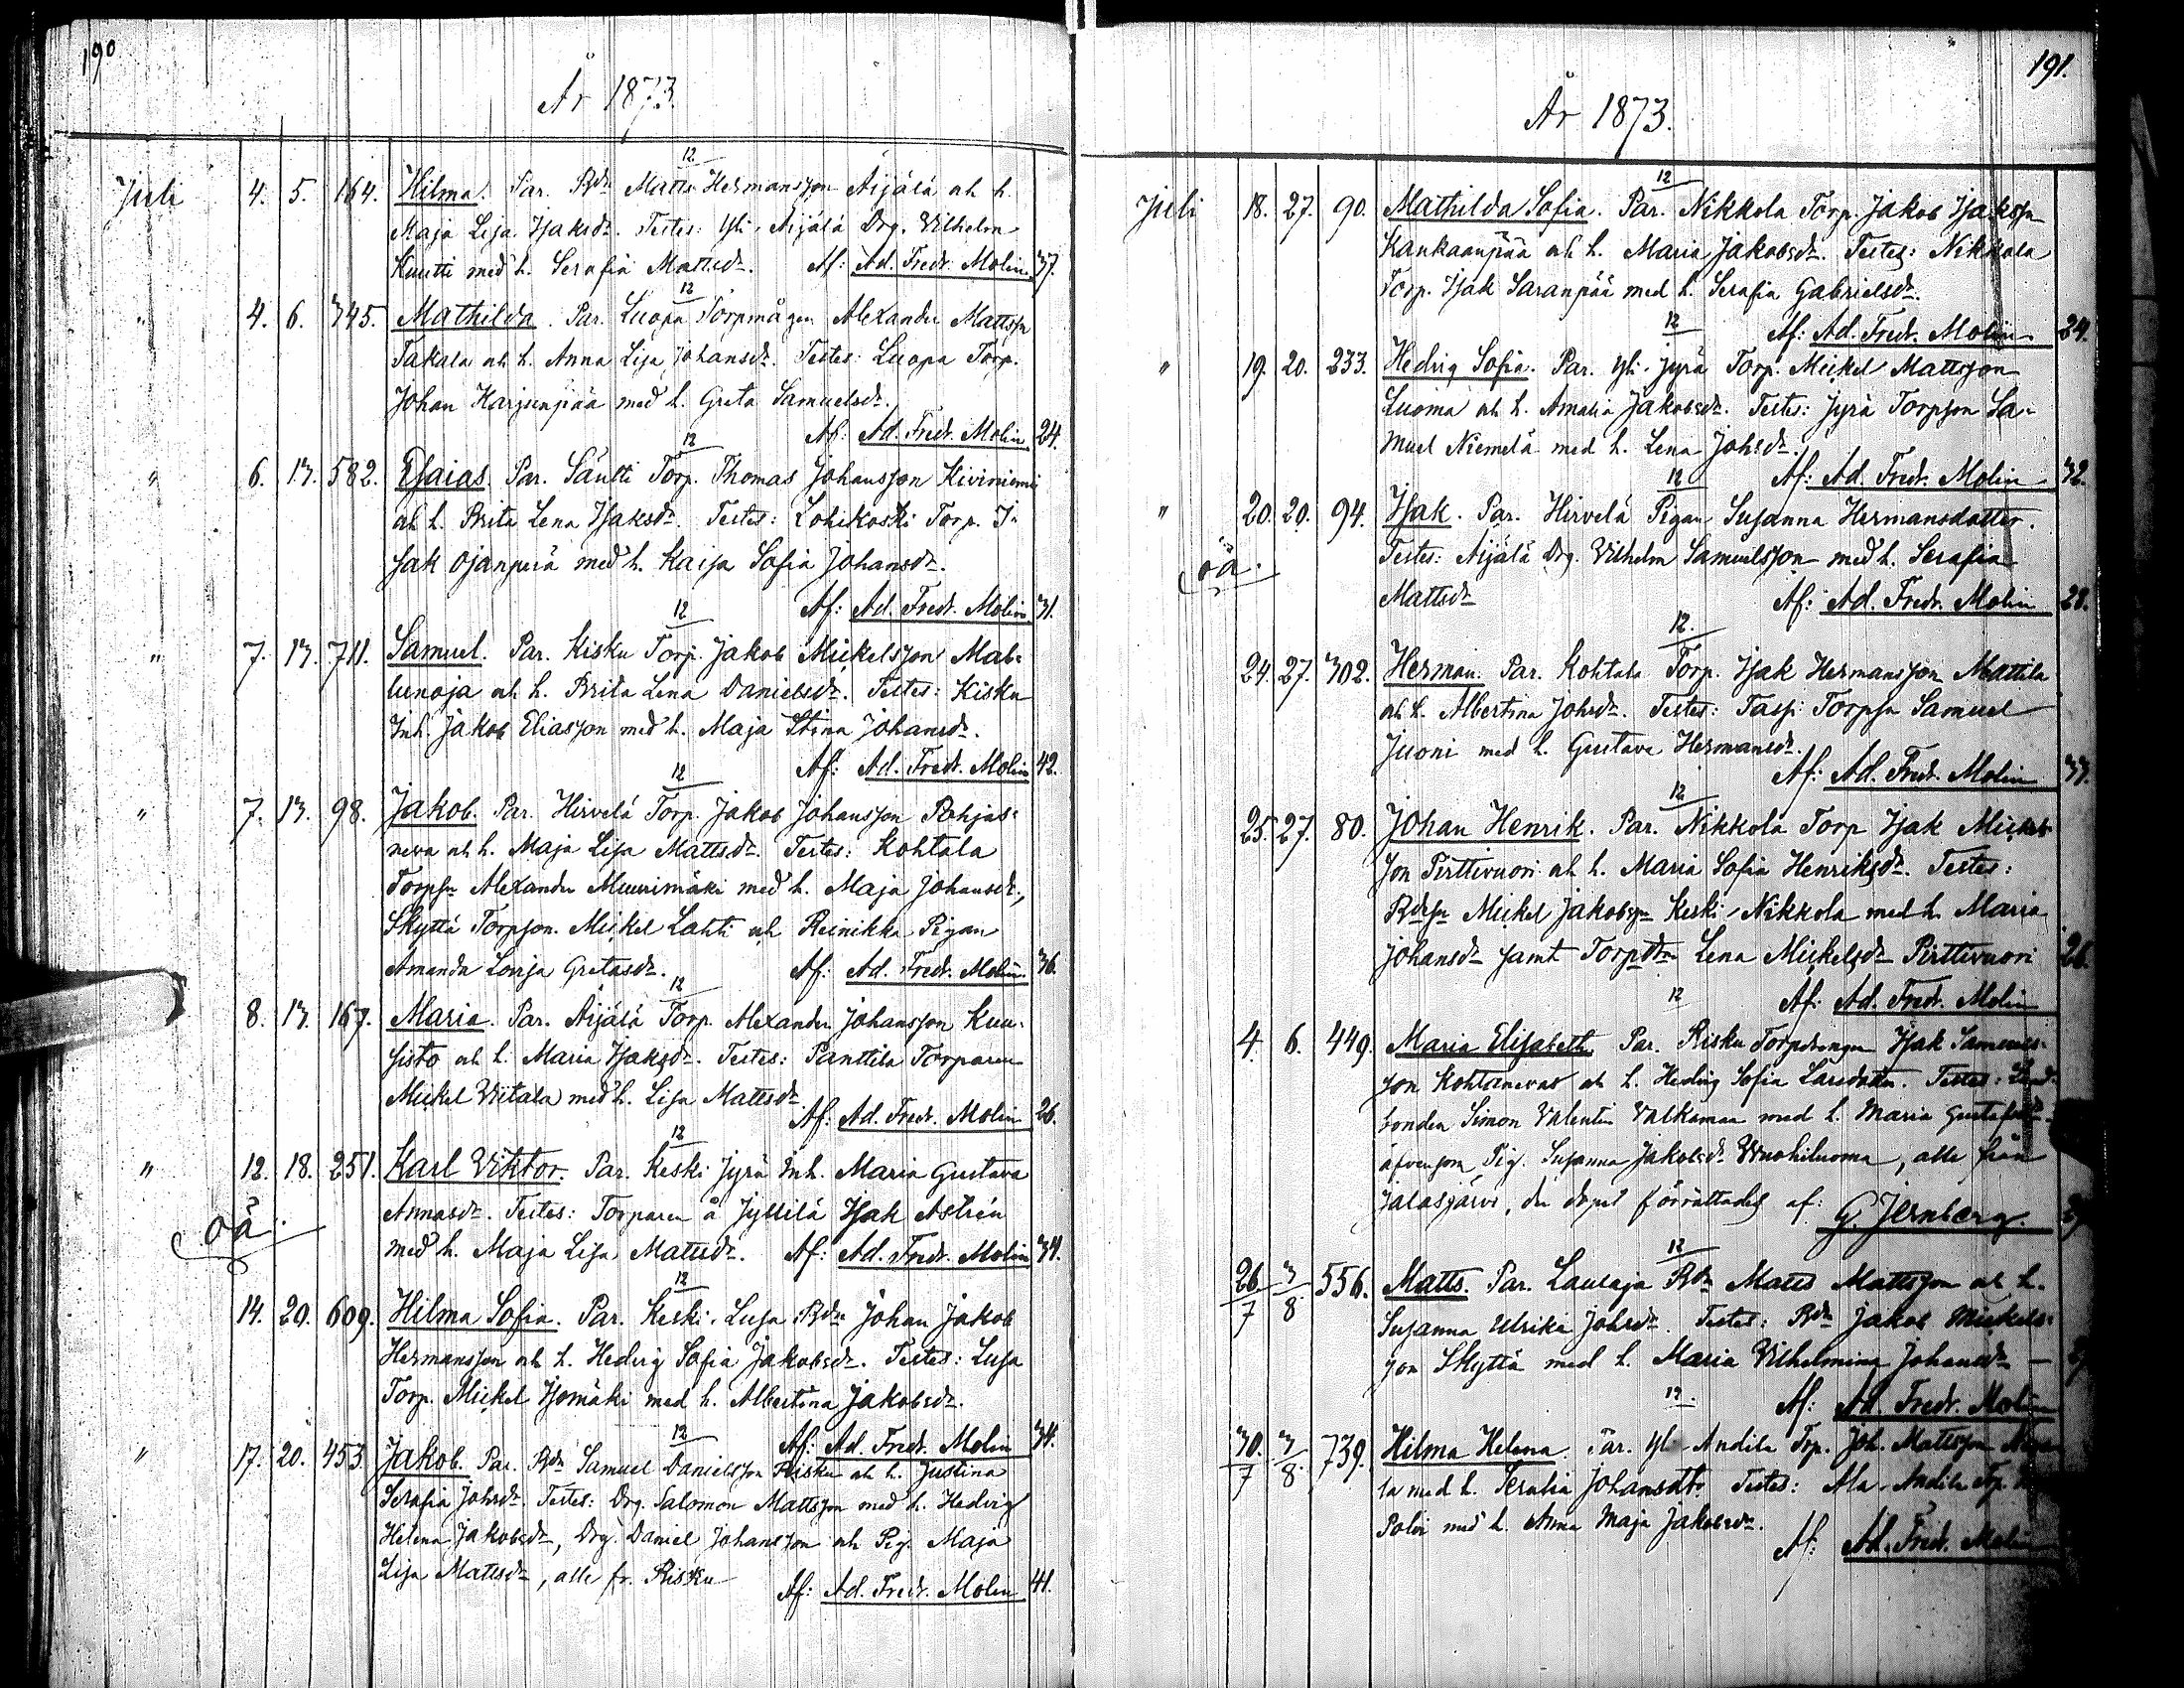 190
År 1873.
12
Juli 4. 5. 164. Hilma. Par. Bdn Matts Hermansson Äijälä och h.
Maja Lisa Isaksdr. Testes: Yli-Äijälä Drg. Vilhelm
Kuutti med h. Serafia Mattsdr. Af: Ad. Fredr. Molin 37.
12
" 4. 6. 345. Mathilda. Par. Luopa Torpmågen Alexander Mattsson
Takala och h. Anna Lisa Johansdr. Testes: Luopa Torp.
Johan Harjunpää med h. Greta Samuelsdr.
12 Af: Ad. Fredr. Molin 24.
" 6. 13. 582. Esaias. Par. Säntti Torp. Thomas Johansson Kiviniemi
och h. Brita Lena Isaksdr. Testes: Lohikoski Torp. I-
sak Ojanperä med h. Kaisa Sofia Johansdr.
12 Af: Ad. Fredr. Molin 31.
" 7. 13. 711. Samuel. Par. Kisku Torp. Jakob Mickelsson Mab-
lunoja och h. Brita Lena Danielsdr. Testes: Kisku
Inh. Jakob Eliasson med h. Maja Stina Johansdr.
12 Af: Ad. Fredr. Molin 42.
" 7. 13. 98. Jakob. Par. Hirvelä Torp. Jakob Johansson Pohjas-
neva och h. Maja Lisa Mattsdr. Testes: Kohtala
Torpsn Alexander Muurimäki med h. Maja Johansdr.,
Skyttä Torpson. Mickel Lahti och Reinikka Pigan
Amanda Lovisa Gretasdr. Af: Ad. Fredr. Molin 36.
12
8. 13. 167. Maria. Par. Äijälä Torp. Alexander Johansson Kuu-
sisto och h. Maria Isaksdr. Testes: Panttila Torparen
Mickel Viitala med h. Lisa Mattsdr
12 Af: Ad. Fredr. Molin 26.
" 12. 18. 251. Karl Viktor. Par. Keski Jyrä Inh. Maria Gustava
oä. Annasdr. Testes: Torparen å Jyllilä Isak Astrén
med h. Maja Lisa Mattsdr. Af: Ad. Fredr. Molin 34.
12
14. 20. 609. Hilma Sofia. Par. Keski-Lusa Bdn Johan Jakob
Hermansson och h. Hedvig Sofia Jakobsdr. Testes: Lusa
Torp. Mickel Isomäki med h. Albertina Jakobsdr.
12 Af: Ad. Fredr. Molin 34.
" 17. 20. 453. Jakob. Par. Bdn Samuel Danielsson Risku och h. Justina
Serafia Johsdr. Testes: Drg. Salomon Mattsson med h. Hedvig
Helena Jakobsdr, Drg. Daniel Johansson och Pig. Maja
Lisa Mattsdr, alle fr. Risku Af: Ad. Fredr. Molin 41.
191.
År 1873.
12
Juli 18. 27. 90. Mathilda Sofia. Par. Nikkola Torp. Jakob Isaksson
Kankaanpää och h. Maria Jakobsdr. Testes: Nikkola
Torp. Isak Saranpää med h. Serafia Gabrielsdr.
12 Af: Ad. Fredr. Molin 24.
" 19. 20. 233. Hedvig Sofia. Par. Yli-Jyrä Torp. Mickel Mattsson
Luoma och h. Amalia Jakobsdr. Testes: Jyrä Torpson Sa-
muel Niemelä med h. Lena Johsdr.
12 Af: Ad. Fredr. Molin 32.
" 20. 20. 94. Isak. Par. Hirvelä Pigan Susanna Hermansdotter.
oä. Testes: Äijälä Drg. Vilhelm Samuelsson med h. Serafia
Mattsdr Af: Ad. Fredr. Molin 28.
12.
24. 27. 302. Herman. Par. Kohtala Torp. Isak Hermansson Mattila
och h. Albertina Johsdr. Testes: Tassi Torpsn Samuel
Juoni med h. Gustava Hermansdr.
12 Af: Ad. Fredr. Molin 33.
25. 27. 80. Johan Henrik. Par. Nikkola Torp Isak Mickels-
son Pirttivuori och h. Maria Sofia Henriksdr. Testes:
Bdesn Mickel Jakobsson Keski-Nikkola med h. Maria
Johansdr samt Torpdtr Lena Mickelsdr Pirttivuori 26.
12 Af: Ad. Fredr. Molin
4. 6. 449. Maria Elisabeth. Par. Risku Torpdrengen Isak Samuels-
son Kohtanevas och h. Hedvig Sofia Larsdotter Testes: Land-
bonden Simon Valentin Valkamaa med h. Maria
äfvensom Pig. Susanna Jakobsdr Wuohiluoma, alle från
Jalasjärvi, der dopet förrättades af: G. Jernberg.
12
26/7 3/8 556. Matts. Par. Laulaja Bdn Matts Mattsson och h.
Susanna Ulrika Johsdr. Testes: Bdn Jakob Mickels-
son Skyttä med h. Maria Vilhelmina Johansdr —
12. Af: Ad. Fredr. Molin
30./7 3/8. 739. Hilma Helena. Par. Yli-Andila Trp. Joh. Mattsson
la med h. Serafia Johansdtr. Testes: Ala-Andila Trp.
Polvi med h. Anna Maja Jakobsdr.
Af: Ad. Fredr. Molin